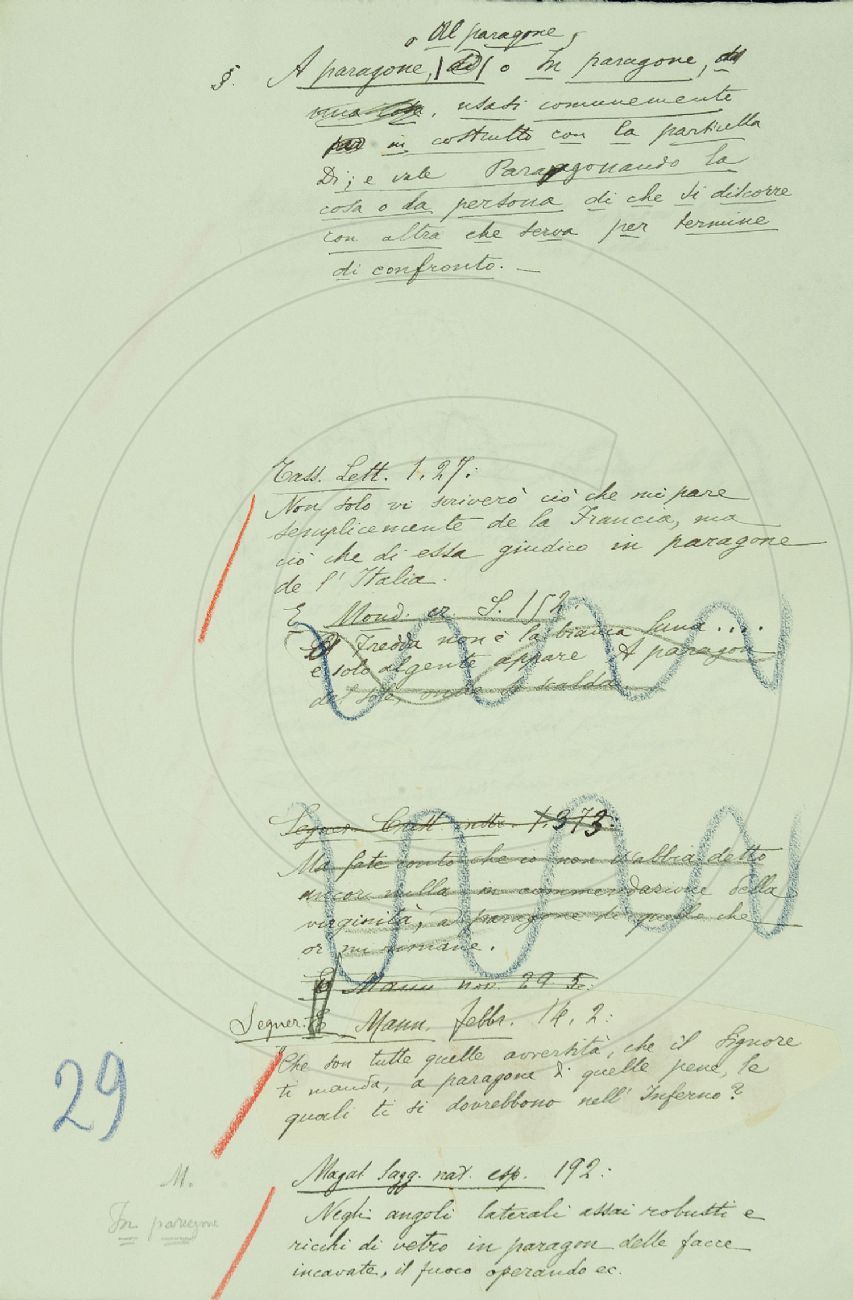 o Al paragone,
§. A paragone, o In paragone,
usasi comunemente
in costrutto con la particella
Di; e vale Paragonando la
cosa o la persona di che si discorre
con altra che serva per termine
di confronto. —
Tass. Lett. 1. 27:
Non solo vi scriverò ciò che mi pare
semplicemente de la Francia, ma
ciò che di essa giudico in paragone
de l'Italia.
E Mond. cr. S. 152.
Fredda non è la bianca Luna....
e solo algente appare A paragon
del sole, onde si scalda.
Segner. Crist. instr. 1. 373:
Ma fate conto che io non v'abbia detto
ancor nulla in commendazione della
virginità, a paragone di quello che
or mi rimane.
E Mann. nov. 29. 5:
Segner. Mann. febbr. 14. 2:
Che son tutte quelle avversità, che il Signore
ti manda, a paragone di quelle pene, le
quali ti si dovrebbono nell'Inferno?
29
M.
In paragone
Magal. Sagg. nat. esp. 192:
Negli angoli laterali assai robusti e
ricchi di vetro in paragon delle facce
incavate, il fuoco operando ec.